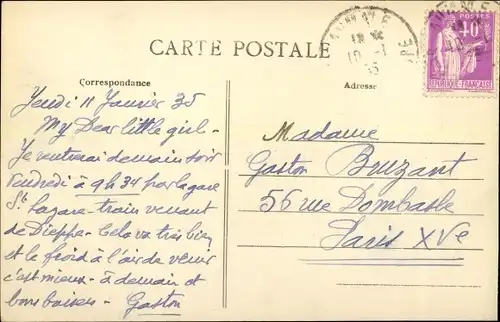 CARTE POSTALE
Correspondance
Adresse
40
REPUBLIQUE FRANÇAISE
Jeudi 11 Janvier 35
My Dear little girl -
Je rentrerai demain soir
Vendredi à 9h34 par la gare
St Lazare - train venant
de Dieppe - Cela va très bien
et le froid à l'air de venir
c'est mieux - à demain et
bons baisers - Gaston
Madame
Gaston Bruzant
56 rue Dombasle
Paris XVe